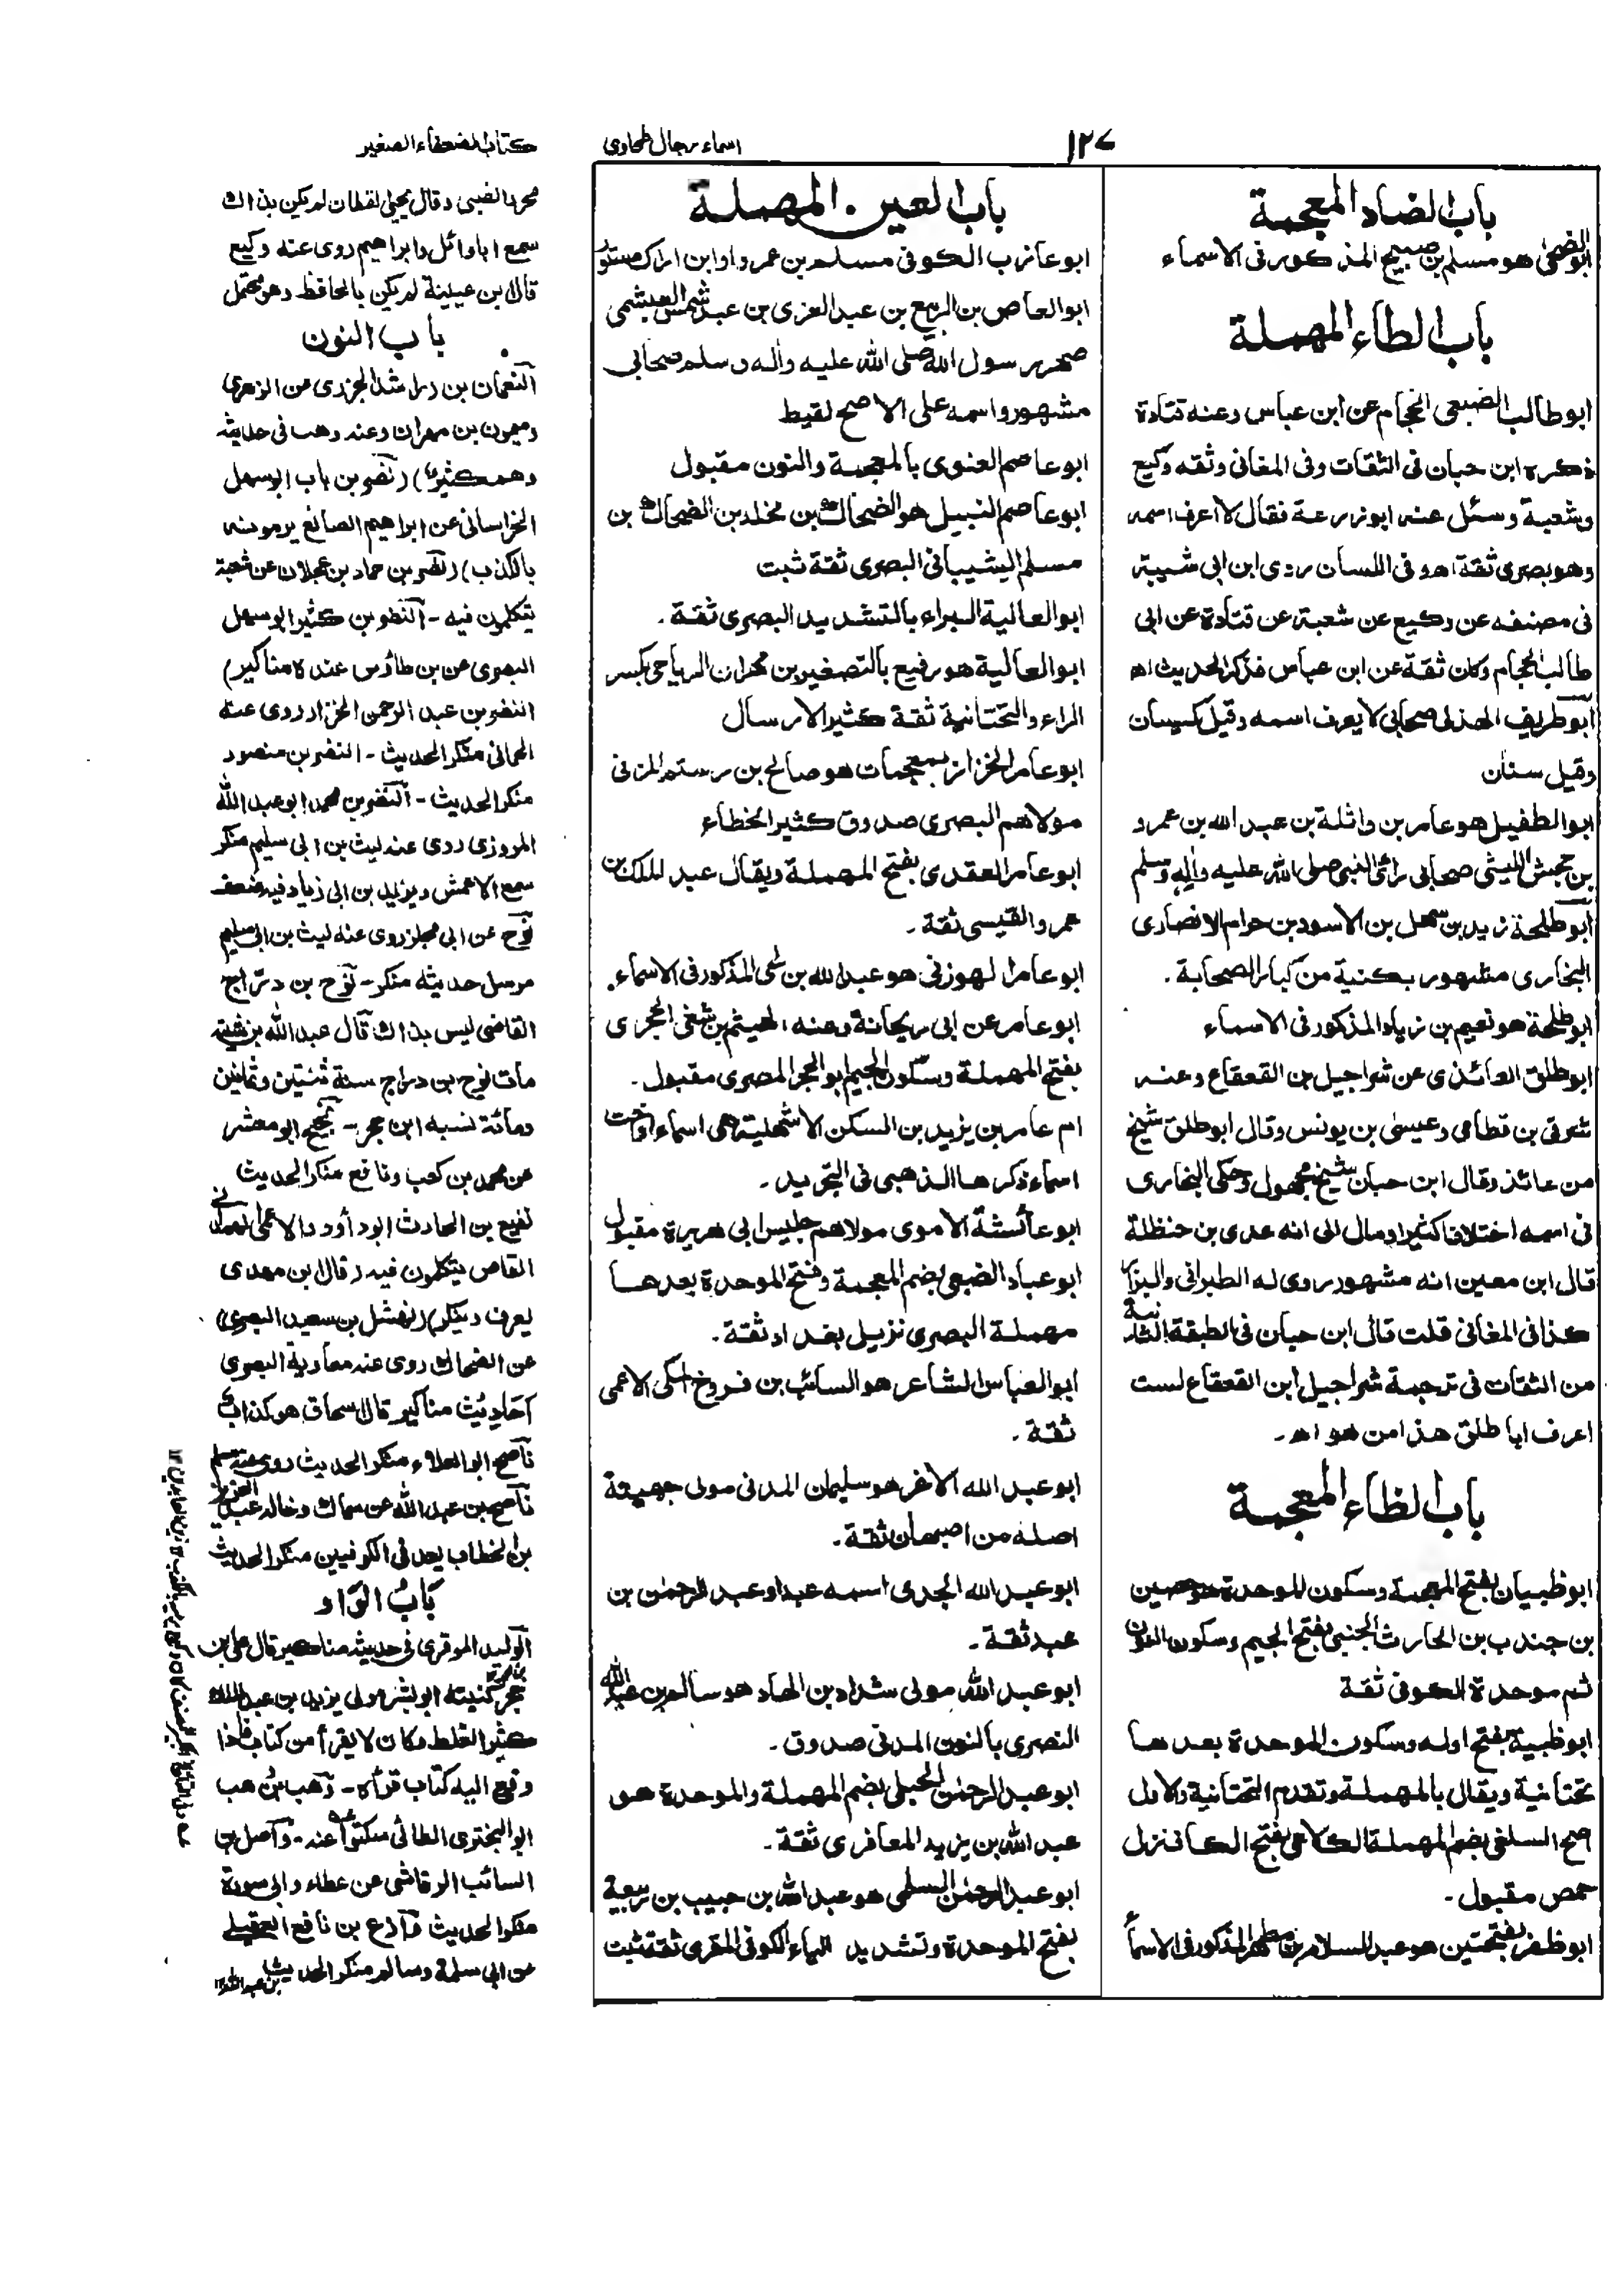 ١٢٧
اسماء رجال طحاوى
كتاب الضعفاء الصغير
باب الضاد المعجمة
ابوالضحى هو مسلم بن صبيح المذكور فى الاسماء
باب الطاء المهملة
ابوطالب الضبعى الحجام عن ابن عباس وعنه قتادة
ذكره ابن حبان فى الثقات وفى المغانى وثقه وكيع
وشعبة وسئل عنه ابوزرعة فقال لا اعرف اسمه
وهو بصرى ثقة اهـ وفى اللسان روى ابن ابى شيبة
فى مصنفه عن وكيع عن شعبة عن قتادة عن ابى
طالب الحجام وكان ثقة عن ابن عباس فذكر الحديث اهـ
ابوطريف الهذلى صحابى لا يعرف اسمه وقيل كيسان
وقيل سنان
ابوالطفيل هو عامر بن واثلة بن عبد الله بن عمرو
بن جحش الليثى صحابى رائ النبى صلى الله عليه واله وسلم
ابوطلحة زيد بن سهل بن الاسود بن حرام الانصارى
البخارى مشهور بكنية من كبار الصحابة.
ابوطلحة هو نعيم بن زياد المذكور فى الاسماء
ابوطلق العائذى عن شراجيل بن القعقاع وعنه
شرقى بن قطامى وعيسى بن يونس وقال ابوطلق شيخ
من عائذ وقال ابن حبان شيخ مجهول وحكى البخارى
فى اسمه اختلافا كثيرا ومال الى انه عدى بن حنظلة
قال ابن معين انه مشهور روى له الطبرانى والبزار
كذا فى المغانى قلت قال ابن حبان فى الطبقة الثانية
من الثقات فى ترجمة شراجيل ابن القعقاع لست
اعرف ابا طلق هذا من هو اهـ.
باب الظاء المعجمة
ابوظبيان بفتح المعجمة وسكون الموحدة هو حصين
بن جندب بن الحارث الجنبى بفتح الجيم وسكون النون
ثم موحدة الكوفى ثقة
ابوظبية بفتح اوله وسكون الموحدة بعدها
تحتانية ويقال بالمهملة وتقدم التحتانية والاول
اصح السلفى بضم المهملة الكلاعى بفتح الكاف نزل
حمص مقبول.
ابوظفر بفتحتين هو عبد السلام بن مطهر المذكور فى الاسماء
باب العين المهملة
ابوعازب الكوفى مسلم بن عمرو او ابن اراك مستور
ابوالعاص بن الربيع بن عبد العزى بن عبد شمس العبشمى
صهر رسول الله صلى الله عليه واله وسلم صحابى
مشهور واسمه على الاصح لقيط
ابوعاصم العنوى بالمعجمة والنون مقبول
ابوعاصم النبيل هو الضحاك بن مخلد بن الضحاك بن
مسلم الشيبانى البصرى ثقة ثبت
ابوالعالية البراء بالتشديد البصرى ثقة.
ابوالعالية هو رفيع بالتصغير بن مهران الرياحى بكسر
الراء والتحتانية ثقة كثير الارسال
ابوعامر الخزاز بمعجمات هو صالح بن رستم المزنى
مولاهم البصرى صدوق كثير الخطاء
ابوعامر العقدى بفتح المهملة ويقال عبد الملك بن
عمرو القيسى ثقة.
ابوعامر الهوزنى هو عبد الله بن لحى المذكور فى الاسماء.
ابوعامر عن ابى ريحانة وعنه الهيثم بن شفى الحجرى
بفتح المهملة وسكون الجيم ابوالحجر المصرى مقبول.
ام عامر بن يزيد بن السكن الاشهلية هى اسماء او اخت
اسماء ذكرها الذهبى فى التجريد.
ابوعائشة الاموى مولاهم جليس ابى هريرة مقبول
ابوعباد الضبعى بضم المعجمة وفتح الموحدة بعدها
مهملة البصرى نزيل بغداد ثقة.
ابوالعباس الشاعر هو السائب بن فروخ المكى الاعمى
ثقة.
ابوعبد الله الاغر هو سليمان المدنى مولى جهينة
اصله من اصبهان ثقة.
ابوعبد الله الجدى اسمه عبد او عبد الرحمن بن
عبد ثقة.
ابوعبد الله مولى شداد بن الهاد هو سالم بن عبد الله
النصرى بالنون المدنى صدوق.
ابوعبد الرحمن الحبلى بضم المهملة والموحدة هو
عبد الله بن يزيد المعافرى ثقة.
ابوعبد الرحمن السلمى هو عبد الله بن حبيب بن ربيعة
بفتح الموحدة وتشديد الياء الكوفى المقرى ثقة ثبت
محرر الضبى وقال يحيى القطان لم يكن بذاك
سمع ابا وائل وابراهيم روى عنه وكيع
قال ابن عيينة لم يكن بالحافظ وهو محتمل
باب النون
النعمان بن راشد الجزرى عن الزهرى
وميمون بن مهران وعنه وهب فى حديثه
وهم كثير) (نصر بن باب ابوسهل
الخراسانى عن ابراهيم الصائغ يرمونه
بالكذب) (نصر بن حماد بن عجلان عن شعبة
يتكلمون فيه - النضر بن كثير ابوسهل
البصرى عن بن طاؤس عنده مناكير)
النضر بن عبد الرحمن الخزاز روى عنه
الحمانى منكر الحديث - النضر بن منصور
منكر الحديث - النضر بن محمد ابوعبد الله
المروزى روى عنه ليث بن ابى سليم منكر
سمع الاعمش ويزيد بن ابى زياد فيه ضعف
نوح عن ابى مجلز روى عنه ليث بن ابى سليم
مرسل حديثه منكر - نوح بن دراج
القاضى ليس بذاك قال عبد الله بن شيبة
مات نوح بن دراج سنة ثنتين وثمانين
ومائة نسبه ابن حجر - نجيح ابومعشر
عن محمد بن كعب ونافع منكر الحديث
نفيع بن الحارث ابوداؤد الاعمى الهمدانى
القاص يتكلمون فيه وقال ابن مهدى
يعرف وينكر) (نهشل بن سعيد البصرى)
عن الضحاك روى عنه معاوية البصرى
احاديث مناكير قال اسحاق هو كذاب
ناصح ابوالعلاء منكر الحديث روى عنه مسلم
ناصح بن عبد الله عن سماك وخالد عبد العزيز
بن الخطاب يعد فى الكوفيين منكر الحديث
باب الواو
الوليد الموقرى فى حديثه مناكير قال على بن
حجر كنيته ابوبشر مولى يزيد بن عبد الملك
كثير الغلط وكان لا يقرأ من كتاب فاذا
دفع اليه كتاب قرأه - وهب بن وهب
ابوالبخترى الطائى سكتوا عنه - واصل بن
السائب الرقاشى عن عطاء وابى سورة
منكر الحديث وازع بن نافع العقيلى
عن ابى سلمة وسالم منكر الحديث
بن عبد الله ١٢